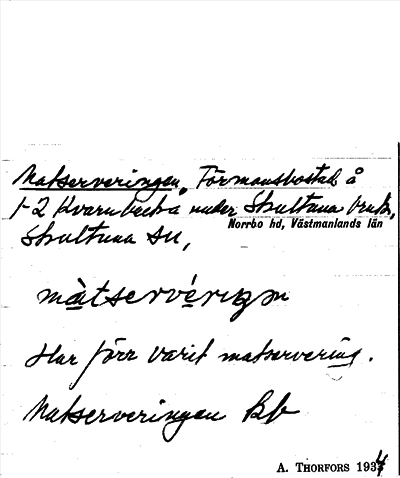 Matserveringen, Förmansbostad å
1-2 Kvarnbecka under Skultuna bruk,
Norrbo hd, Västmanlands län
Skultuna sn,
màtservérinŋən
Har förr varit matservering.
Matserveringen Bb
A. THORFORS 1934